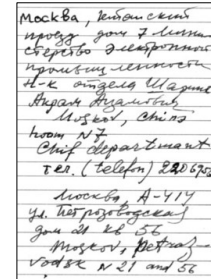 Москва, Китайский
проезд дом 7 Мини
стерство электронной
промышленности
Н-к отдела Шарипов
Акрам Азамович
Moskov, China
room N7
Chif departmant
тел. (telefon)
Москва, А-414
ул. Петрозаводская
дом 21 кв 56
Moskov, Petroza-
vodsk N 21 and 56